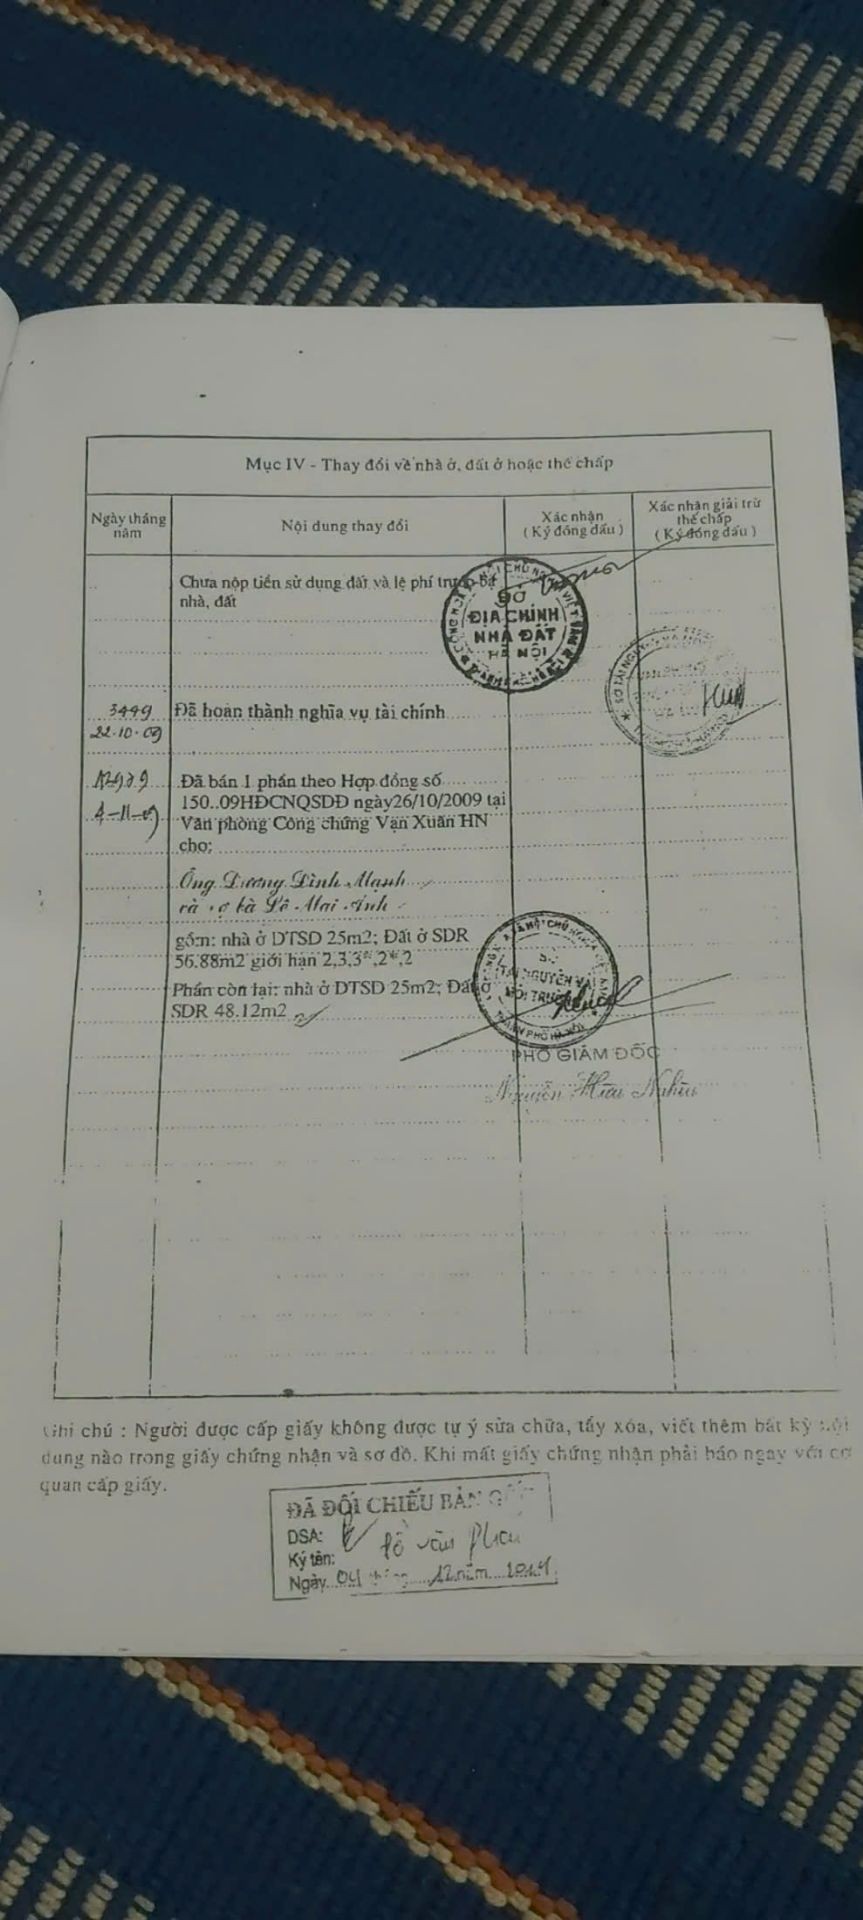 Mục IV - Thay đổi về nhà ở, đất ở hoặc thế chấp
Ngày tháng năm
Nội dung thay đổi
Xác nhận
( Ký đóng dấu )
Xác nhận giải trừ
thế chấp
( Ký đóng dấu )
Chưa nộp tiền sử dụng đất và lệ phí trước bạ
nhà, đất
SỞ
ĐỊA CHÍNH
NHÀ ĐẤT
HÀ NỘI
3449
22.10.09
Đã hoàn thành nghĩa vụ tài chính
4-11-09
Đã bán 1 phần theo Hợp đồng số
150..09HĐCNQSDĐ ngày26/10/2009 tại
Văn phòng Công chứng Vạn Xuân HN
cho:
Ông Dương Đình Mạnh
và vợ bà Lê Mai Anh
gồm: nhà ở DTSD 25m2; Đất ở SDR
56.88m2 giới hạn 2,3,3*,2*,2
Phần còn lại: nhà ở DTSD 25m2; Đất ở
SDR 48.12m2
SỞ
TÀI NGUYÊN VÀ
MÔI TRƯỜNG
THÀNH PHỐ HÀ NỘI
PHÓ GIÁM ĐỐC
Nguyễn Hữu Nghĩa
Ghi chú : Người được cấp giấy không được tự ý sửa chữa, tẩy xóa, viết thêm bất kỳ nội
dung nào trong giấy chứng nhận và sơ đồ. Khi mất giấy chứng nhận phải báo ngay với cơ
quan cấp giấy.
ĐÃ ĐỐI CHIẾU BẢN GỐC
DSA:
Ký tên:
Ngày 04 tháng 12 năm 2014